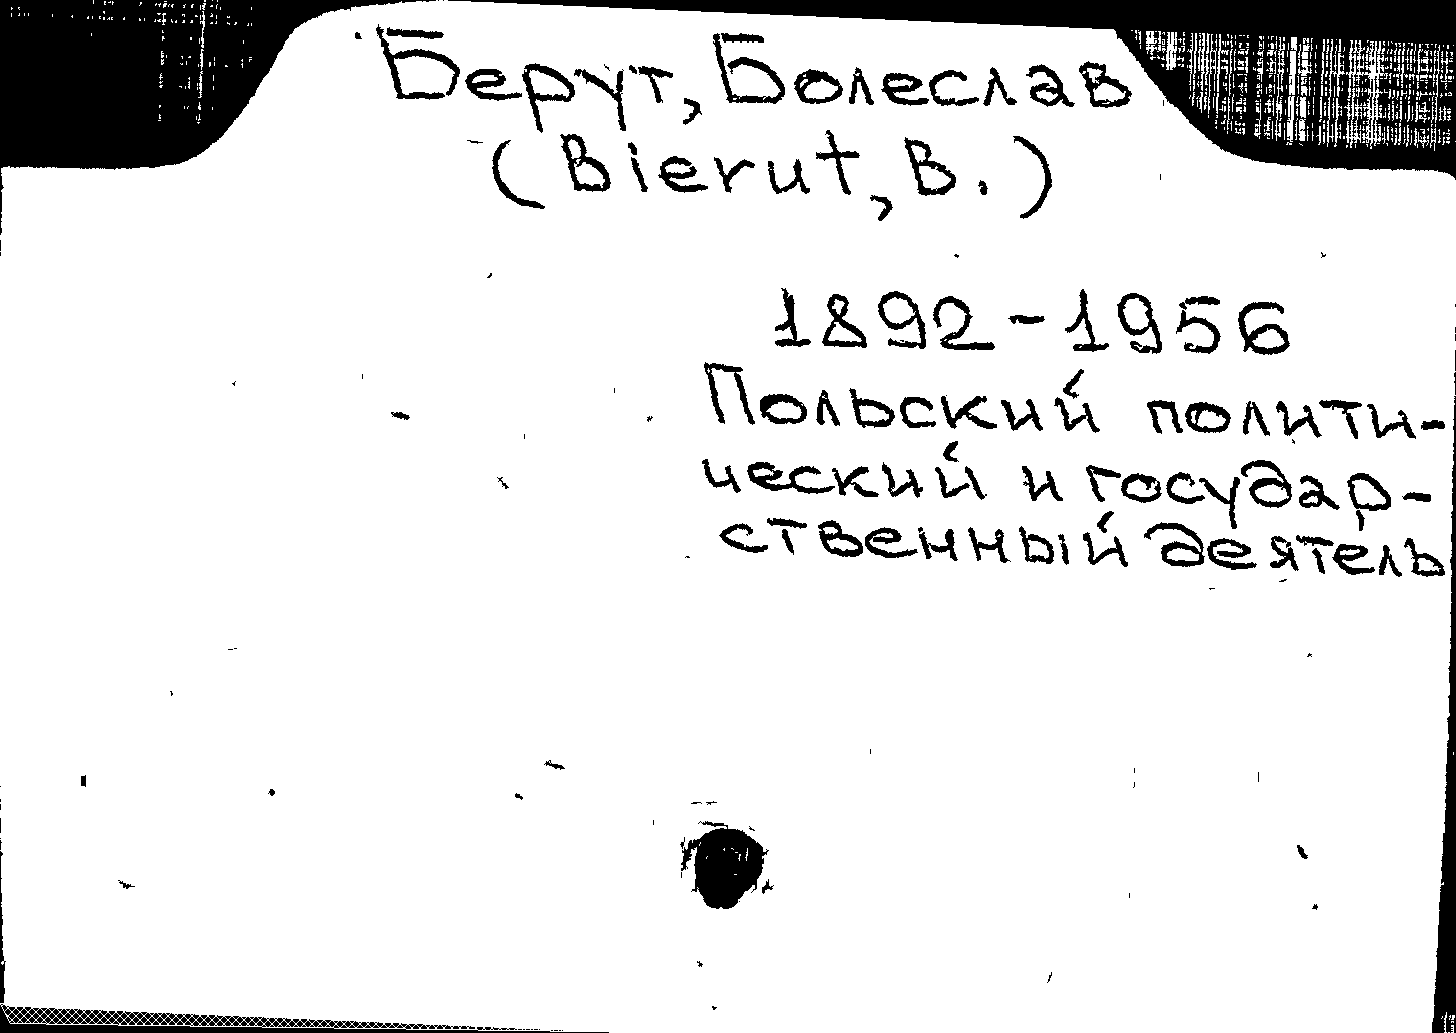 Берут, Болеслав
(Bierut, B.)
1892-1956
Польский полити-
ческий и государ-
ственный деятель